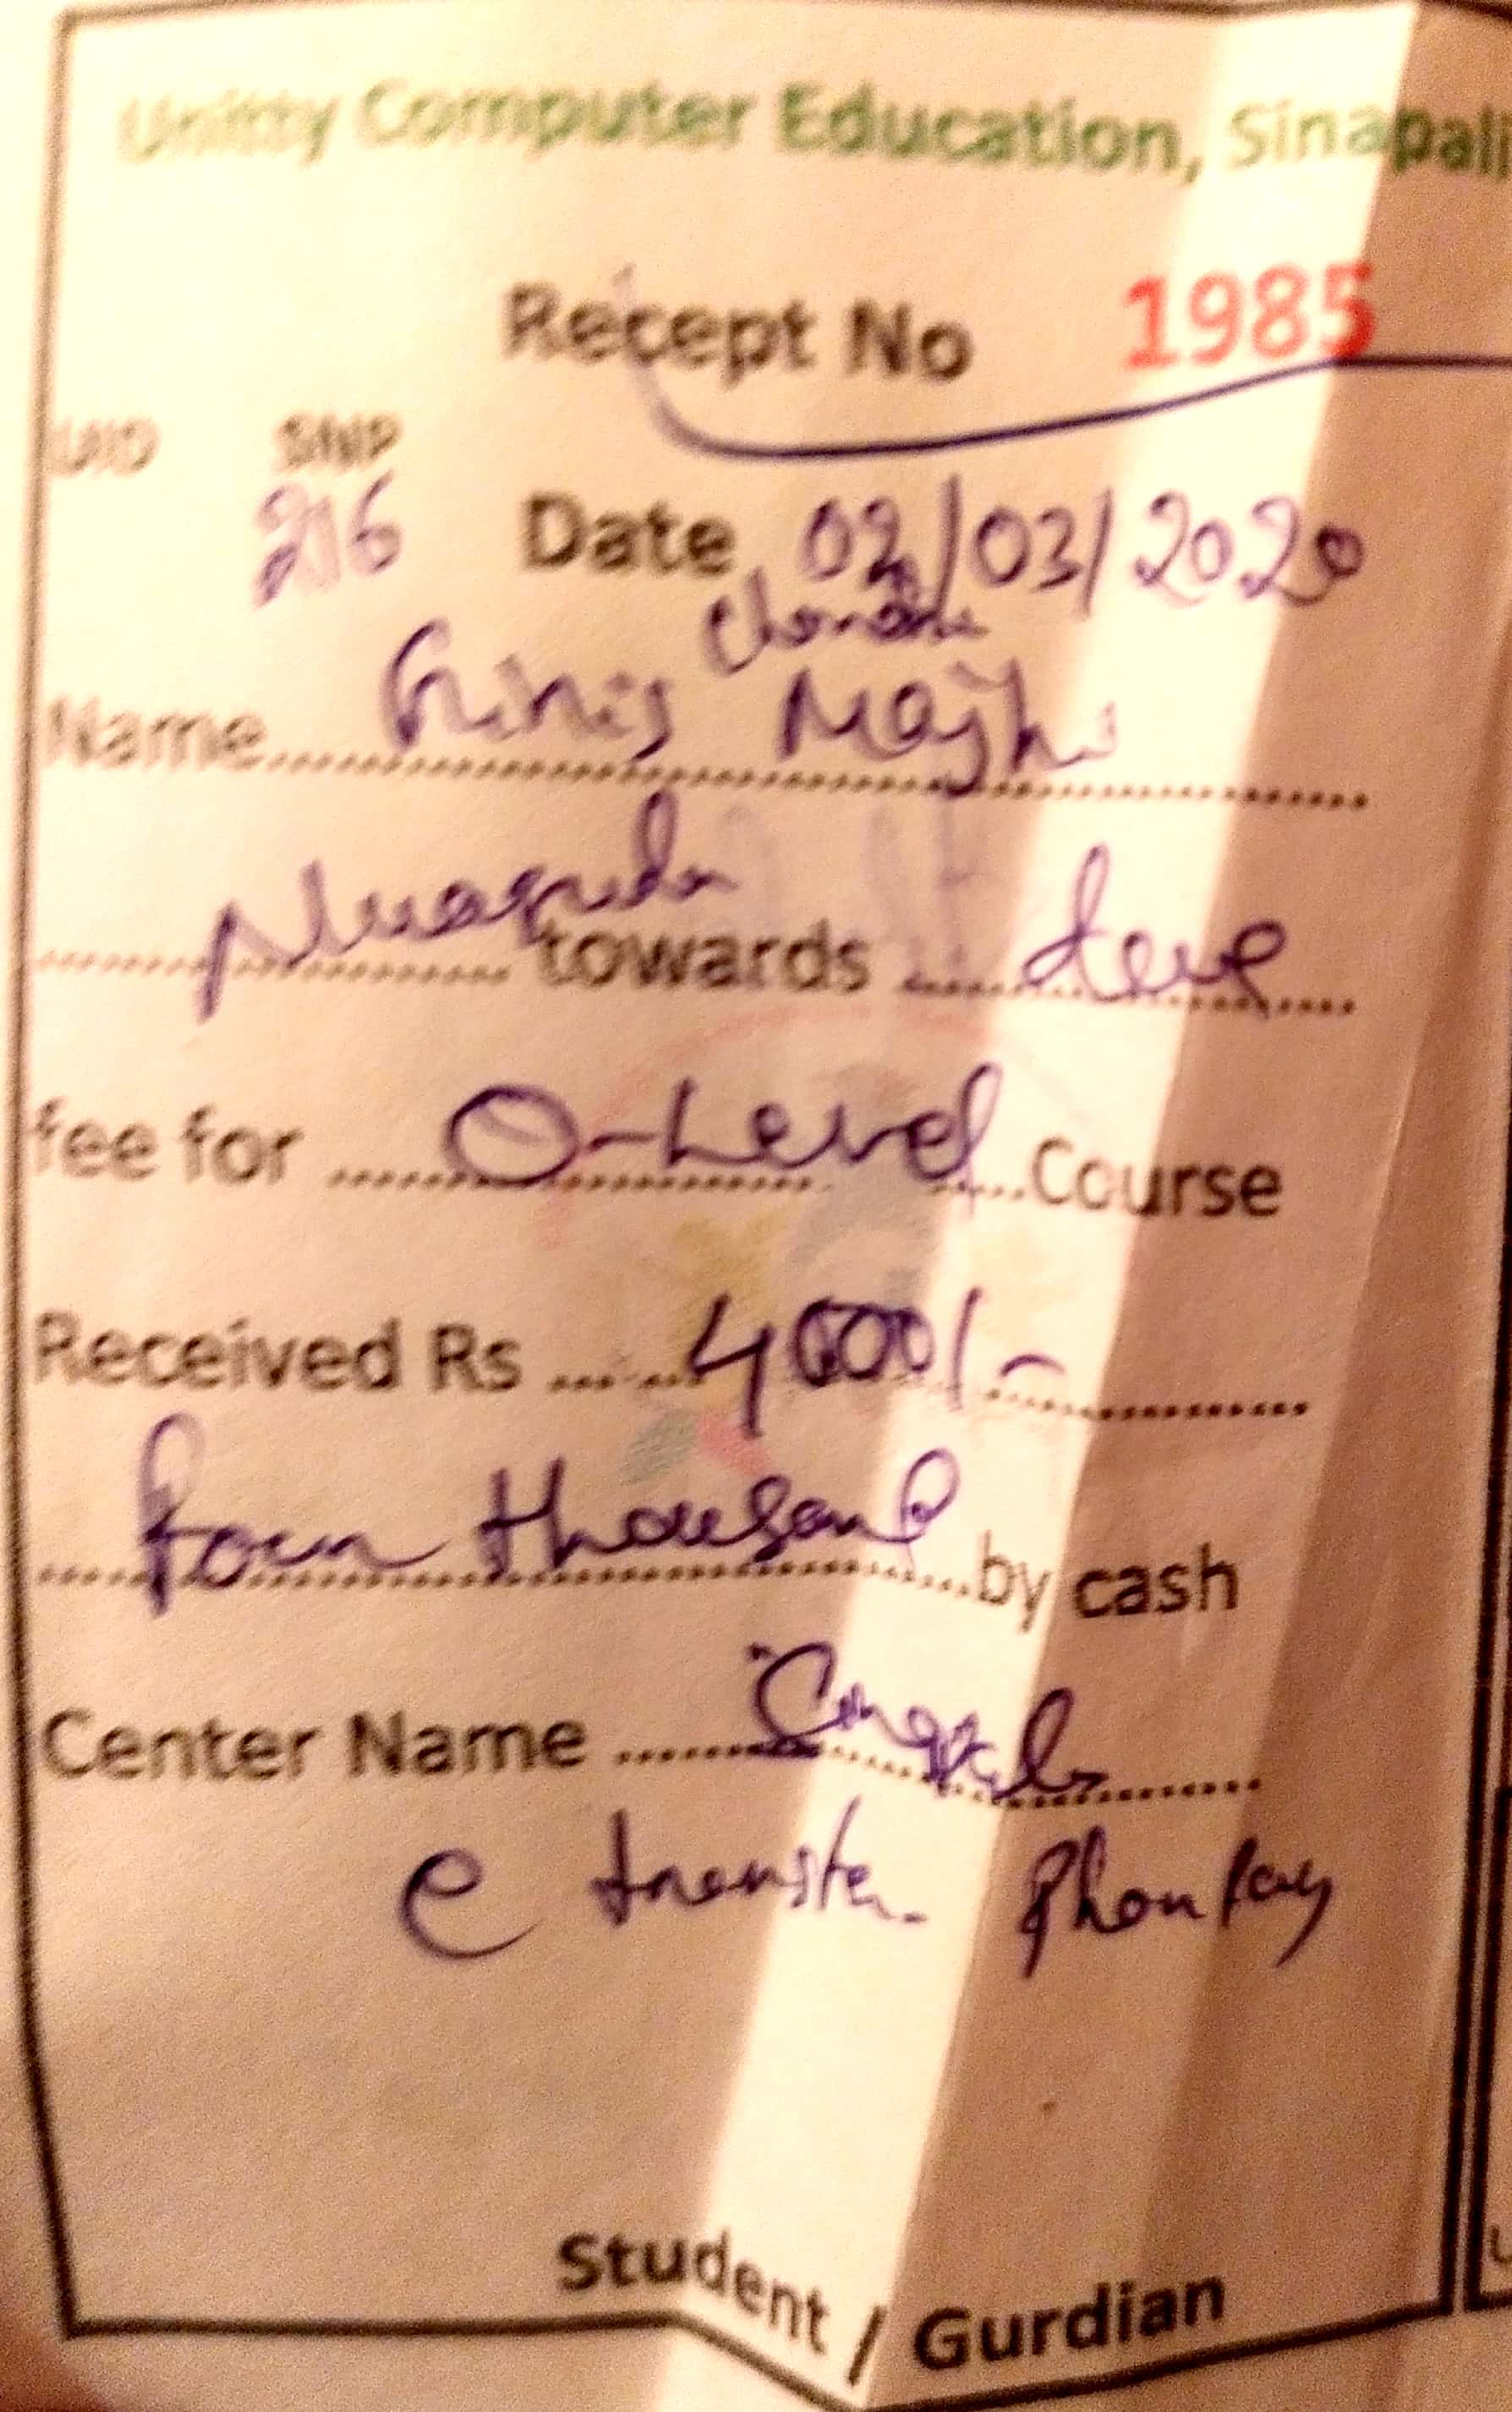 Unitty Computer Education, Sinapali
Recept No 1985
UID SNP
216 Date 02/03/2020
Chandra
Name Giris Majhi
Nuaguda towards
fee for O-Level Course
Received Rs 4000/-
Four thousand by cash
Center Name
e transfer Phon Pay
Student / Gurdian